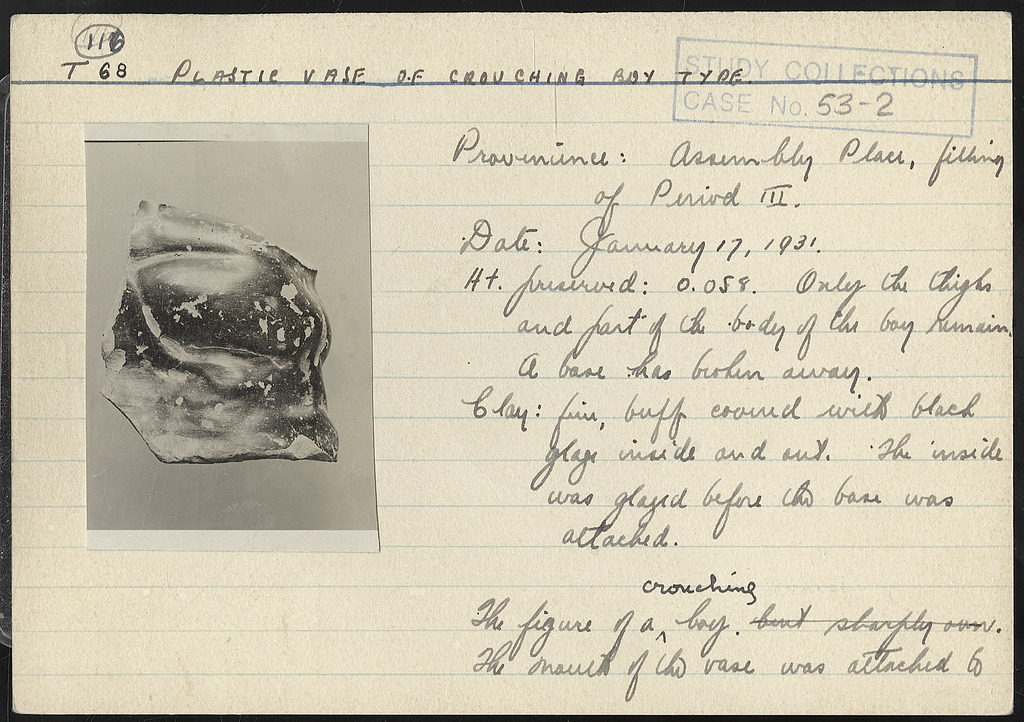 116
T 68 PLASTIC VASE OF CROUCHING BOY TYPE.
STUDY COLLECTIONS
CASE No. 53-2
Provenience: Assembly Place, filling
of Period III.
Date: January 17, 1931.
Ht. preserved: 0.058. Only the thighs
and part of the body of the boy remain.
A base has broken away.
Clay: fine, buff covered with black
glaze inside and out. The inside
was glazed before the base was
attached.
crouching
The figure of a ^ boy. bent sharply over.
The mouth of the vase was attached to